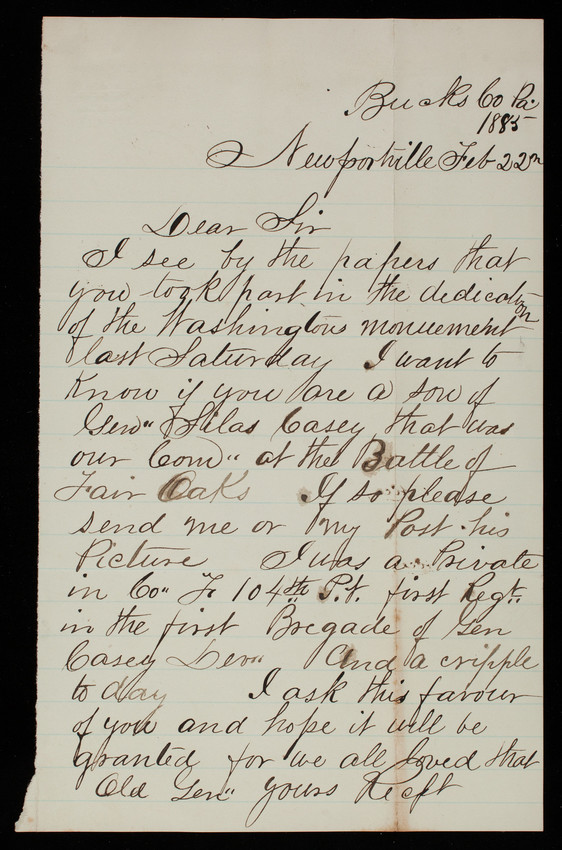 Bucks Co Pa.
1885
Newportville Feb 22n
Dear Sir
I see by the papers that
you took part in the dedication
of the Washingtons monuement
last Saturday I want to
Know if you are a son of
Gen" Silas Casey that was
our Com" at the Battle of
Fair Oaks If so please
send me or my Post his
Picture I was a Private
in Co" F 104th P.V. first Regt"
in the first Bregade of Gen
Casey Dev" And a cripple
to day I ask this favour
of you and hope it will be
granted for we all loved that
Old Gen" Yours Recft